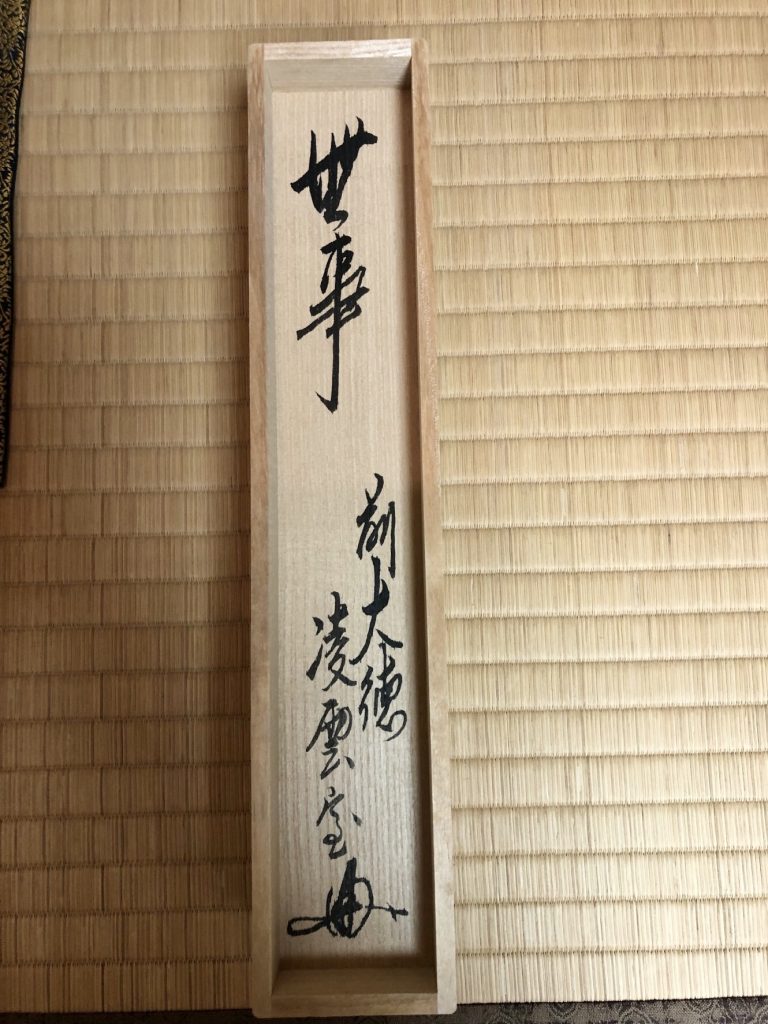 無事
前大徳
凌雲室